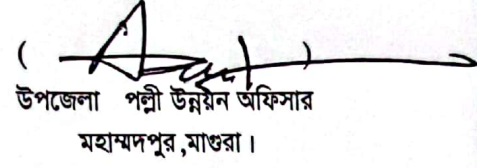 ( )
উপজেলা পল্লী উন্নয়ন অফিসার
মহাম্মদপুর,মাগুরা।